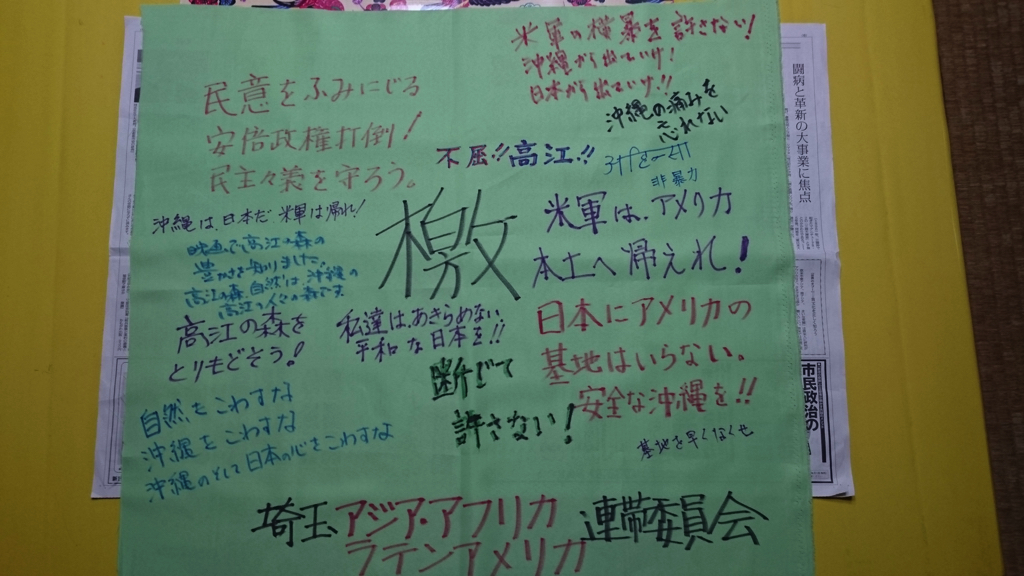 米軍の横暴を許さない!
沖縄から出ていけ!
日本から出ていけ!!
民意をふみにじる
安倍政権打倒!
民主々義を守ろう。
沖縄の痛みを
忘れない
不屈!!高江!!
非暴力
沖縄は、日本だ 米軍は帰れ!
檄
米軍は、アメリカ
本土へ帰えれ!
映画で高江の森の
豊かさを知りました。
高江の森、自然は、沖縄の
高江の人々の森です
高江の森を
とりもどそう!
私達は、あきらめない、
平和な日本を!!
日本にアメリカの
基地はいらない。
安全な沖縄を!!
断じて
許さない!
自然をこわすな
沖縄をこわすな
沖縄のそして日本の心をこわすな
基地を早くなくせ
埼玉アジア・アフリカ
ラテンアメリカ
連帯委員会
闘病と革新の大事業に焦点
市民政治の